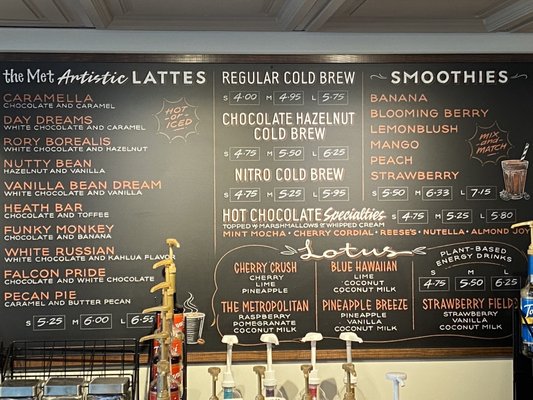 the Met Artistic LATTES
CARAMELLA
CHOCOLATE AND CARAMEL
DAY DREAMS
WHITE CHOCOLATE AND CARAMEL
RORY BOREALIS
WHITE CHOCOLATE AND HAZELNUT
NUTTY BEAN
HAZELNUT AND VANILLA
VANILLA BEAN DREAM
WHITE CHOCOLATE AND VANILLA
HEATH BAR
CHOCOLATE AND TOFFEE
FUNKY MONKEY
CHOCOLATE AND BANANA
WHITE RUSSIAN
WHITE CHOCOLATE AND KAHLUA FLAVOR
FALCON PRIDE
CHOCOLATE AND WHITE CHOCOLATE
PECAN PIE
CARAMEL AND BUTTER PECAN
S 5.25 M 6.00 L 6.55
HOT
-OR-
ICED
REGULAR COLD BREW
S 4.00 M 4.95 L 5.75
CHOCOLATE HAZELNUT
COLD BREW
S 4.75 M 5.50 L 6.25
NITRO COLD BREW
S 4.75 M 5.25 L 5.95
HOT CHOCOLATE Specialties
TOPPED W/ MARSHMALLOWS & WHIPPED CREAM
S 4.75 M 5.25 L 5.80
MINT MOCHA · CHERRY CORDIAL · REESE'S · NUTELLA · ALMOND JOY
SMOOTHIES
BANANA
BLOOMING BERRY
LEMONBLUSH
MANGO
PEACH
STRAWBERRY
MIX
-AND-
MATCH
S 5.50 M 6.33 L 7.15
Lotus
PLANT-BASED
ENERGY DRINKS
S M L
4.75 5.50 6.25
CHERRY CRUSH
CHERRY
LIME
PINEAPPLE
BLUE HAWAIIAN
LIME
COCONUT
COCONUT MILK
THE METROPOLITAN
RASPBERRY
POMEGRANATE
COCONUT MILK
PINEAPPLE BREEZE
PINEAPPLE
VANILLA
COCONUT MILK
STRAWBERRY FIELDS
STRAWBERRY
VANILLA
COCONUT MILK